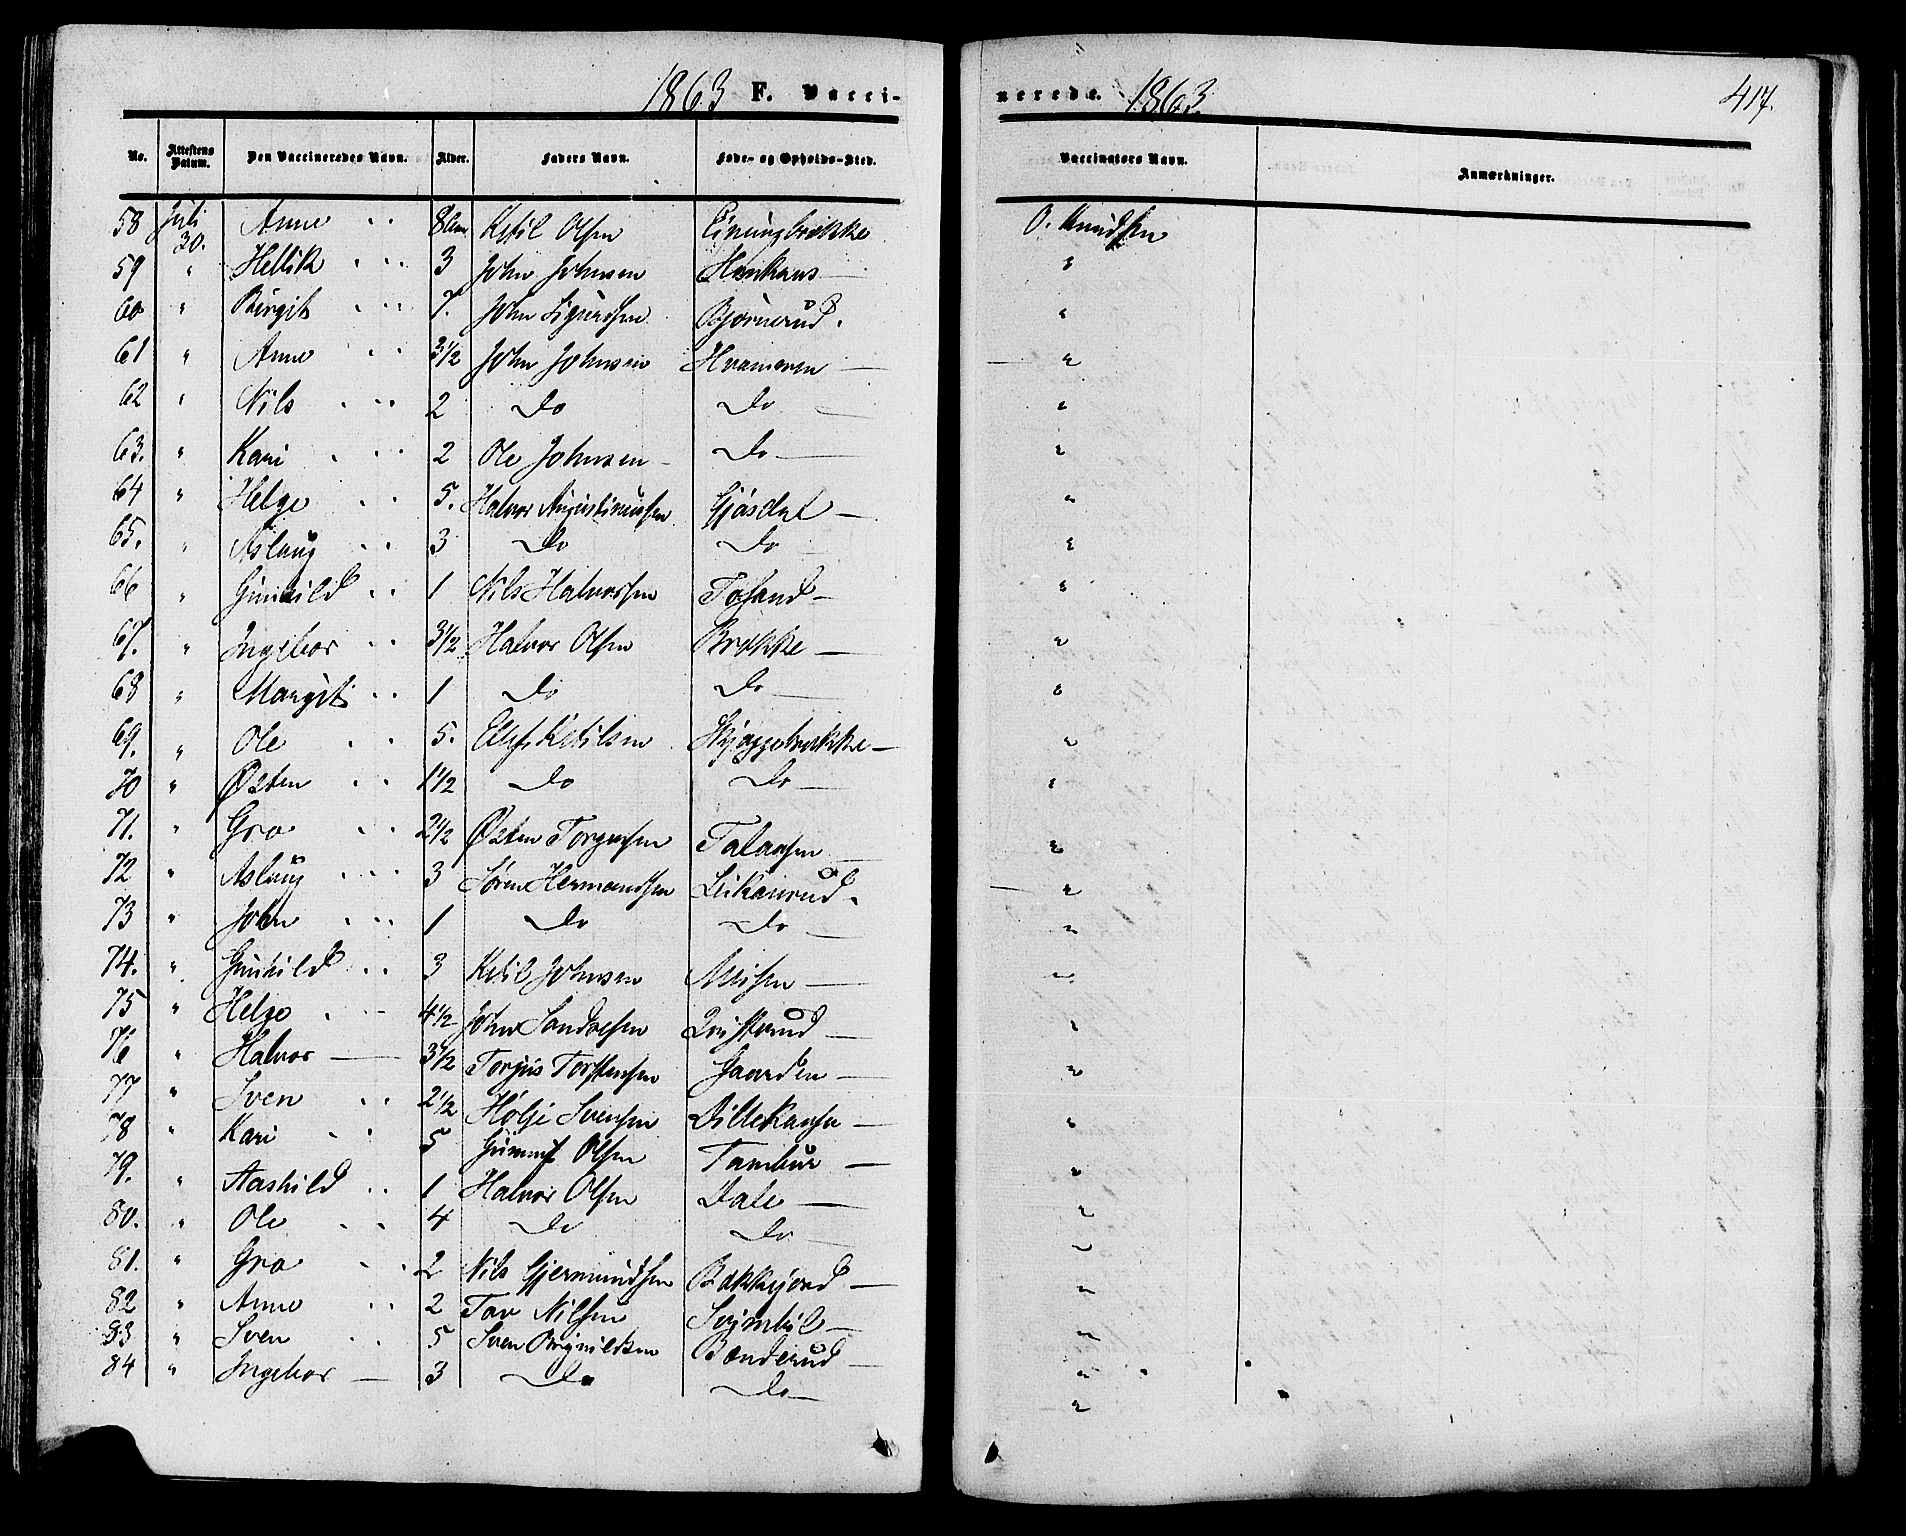 1863 F. Vacci-
nerede. 1863.
417.
No. Attestens Datum. Den Vaccineredes Navn. Alder. Faders Navn. Føde- og Opholds-Sted. Vaccinators Navn. Anmærkninger.
58 Juli 30. Anne " " Ketil Olsen O. Knudsen
59 " Hellik " " 3 John Johnsen "
60 " Birgit " " 7. John Sigurdsen Bjørnerud. "
61 " Anne " " 3 1/2 John Johnsen Hvammen — "
62 " Nils " " 2 Do Do — "
63. " Kari " " 2 Ole Johnsen Do — "
64 " Helge " " 5. Halvor Augustinusen Gjøsdal — "
65. " Aslaug " " 3 Do Do — "
66 " Gunhild " " 1 Nils Halvorsen Tosand — "
67. " Ingebor " " 3 1/2 Halvor Olsen Brække — "
68 " Margit " " 1 Do Do — "
69. " Ole " " 5. Elef Ketilsen Skjæggebrække — "
70 " Østen " " 1 1/2 Do Do — "
71. " Gro " " 2 1/2 Østen Torgersen Talaasen — "
72 " Aslaug " " 3 Søren Hermandsen "
73 " John " " 1 Do Do — "
74. " Gunhild " " 3 Ketil Johnsen "
75 " Helge " - 4 1/2 John Sondresen "
76 " Halvor — 3 1/2 Torjus Torstensen Haarden — "
77 " Sven " " 2 1/2 Hølje Svensen "
78 " Kari " " 5 Olsen Tambur — "
79. " Aashild " " 1 Halvor Olsen Dale — "
80. " Ole " " 4 Do Do — "
81. " Gro " " 2 Nils Gjermundsen Bakkejord — "
82 " Anne " " 2 Tov Nilsen "
83 " Sven " 5 Sven "
84 " Ingebor — 3 Do Do — "